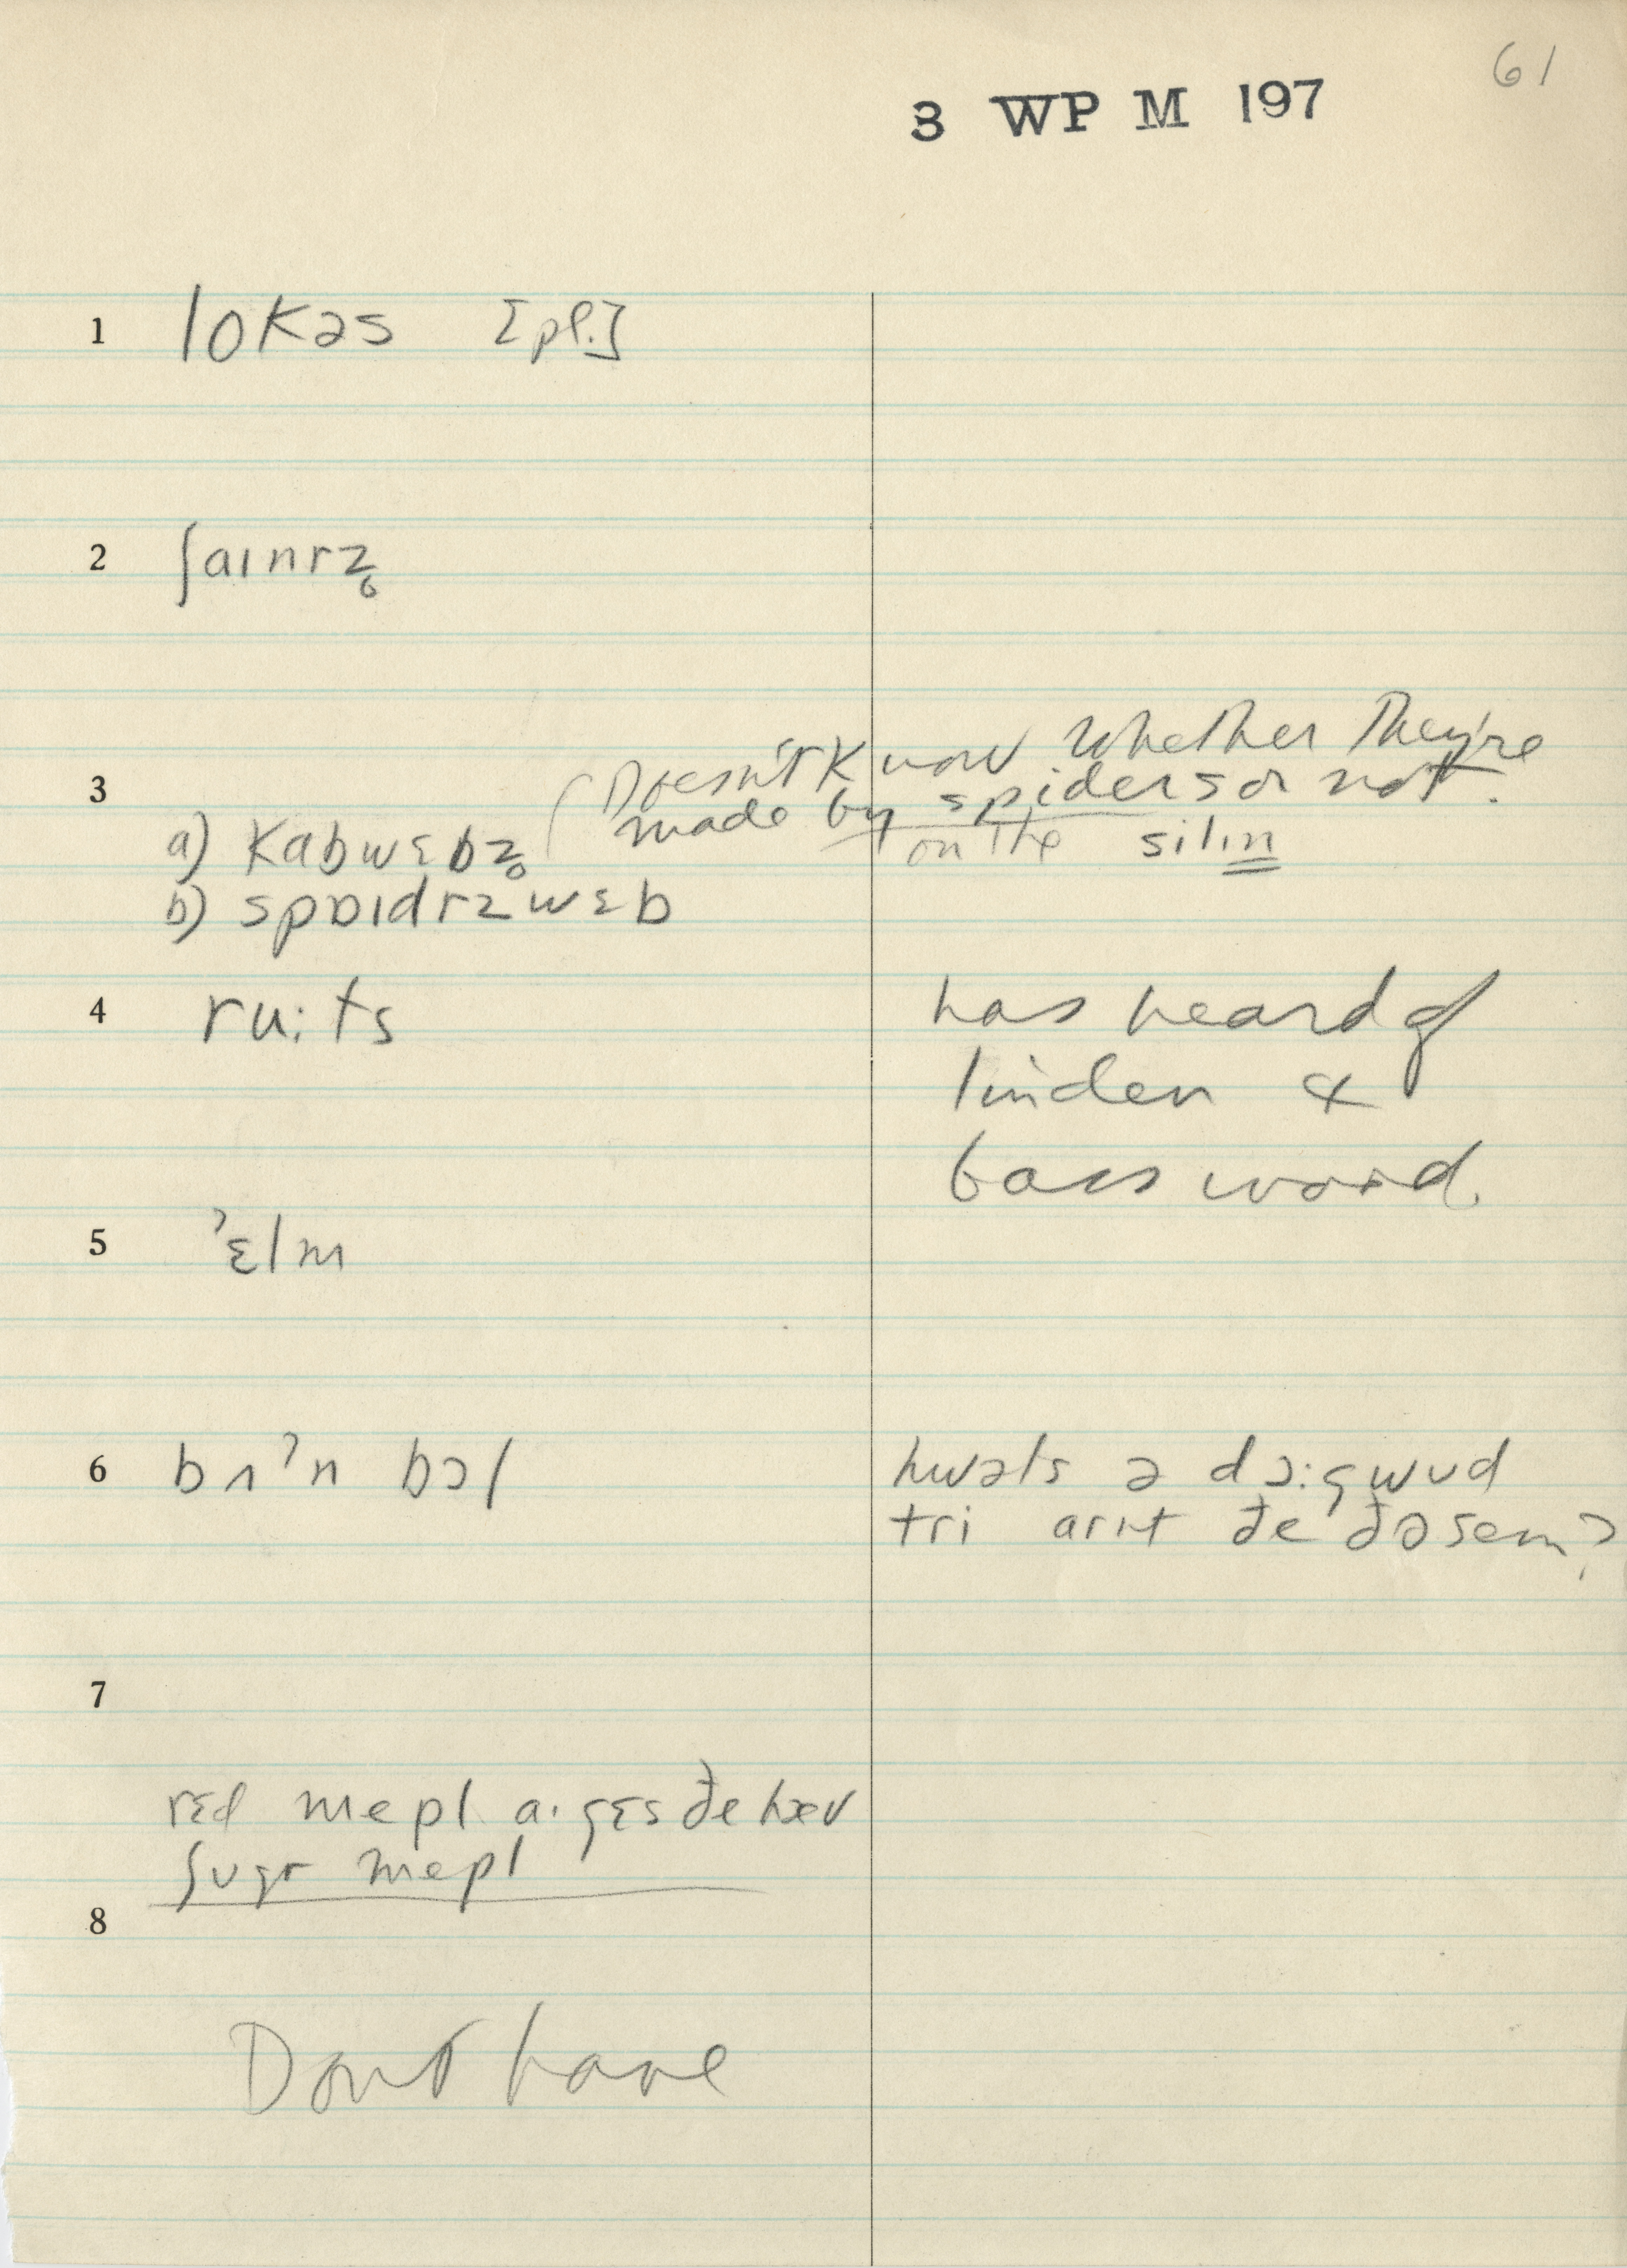 61
3 WP M 197
1 lokəs [pl.]
2 ʃaɪnrz̥
3 (Doesn't know whether they're
made by spiders or not.
a) kabwɛbz̥ on the silɪn
b) spɒɪdrzwɛb
4 ru:ts has heard of
linden &
basswood.
5 ʔɛlm
6 bʌʔn bɔl hwəts ə dɔ:gwʊd
tri arɪt ðe ðə sem?
7
rɛd mepl a·gɛs ðe hæv
ʃʊgr mepl
8
Don't have